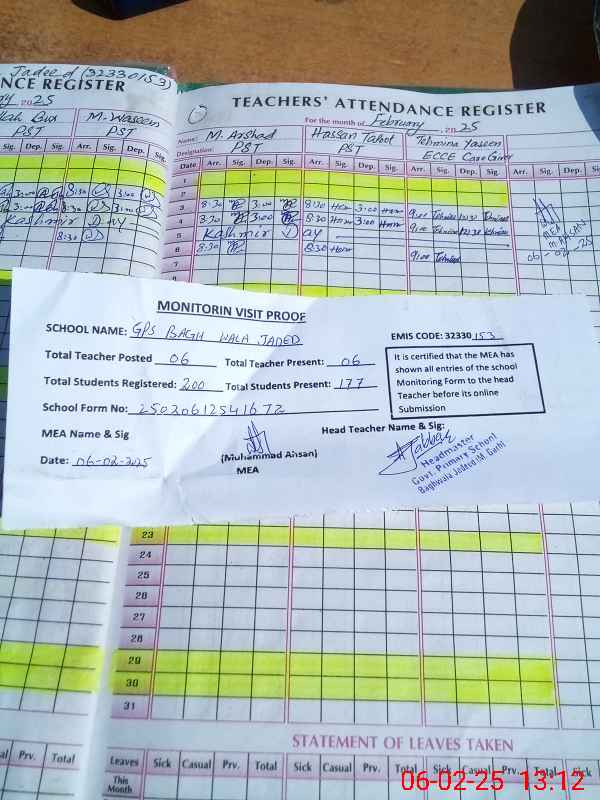 Jadeed (32330153)
NCE REGISTER
2025
M. Waseem
PST PST
Sig. Dep. Sig. Arr. Sig. Dep. Sig.
3:00 8:30 3:00
Kashmir Day
8:30
TEACHERS' ATTENDANCE REGISTER
For the month of February 2025
Name: M. Arshad Hassan Talbot Tehmina Yaseen
Designation: PST PST ECCE Care Giver
Date Arr. Sig. Dep. Sig. Arr. Sig. Dep. Sig. Arr. Sig. Dep. Sig. Arr. Sig. Dep. Sig.
1
2
3 8:30 3:00 8:30 3:00 9:00 12:30
4 8:30 3:00 8:30 3:00 9:00 12:30
5 Kashmir Day
6 8:30 8:30 9:00
7
MEA
M. AHSAN
06-02-25
MONITORIN VISIT PROOF
SCHOOL NAME: GPS BAGH WALA JADED EMIS CODE: 32330153
Total Teacher Posted 06 Total Teacher Present: 06
Total Students Registered: 200 Total Students Present: 177
School Form No: 25020612541672
It is certified that the MEA has
shown all entries of the school
Monitoring Form to the head
Teacher before its online
Submission
MEA Name & Sig Head Teacher Name & Sig:
(Muhammad Ahsan)
MEA
Date: 06-02-2025
Headmaster
Govt. Primary School
Baghwala Jadeed M. Garh
23
24
25
26
27
28
29
30
31
STATEMENT OF LEAVES TAKEN
al Prv. Total Leaves Sick Casual Prv. Total Sick Casual Prv. Total Sick Casual Prv. Total Sick
This
Month
06-02-25 13.12